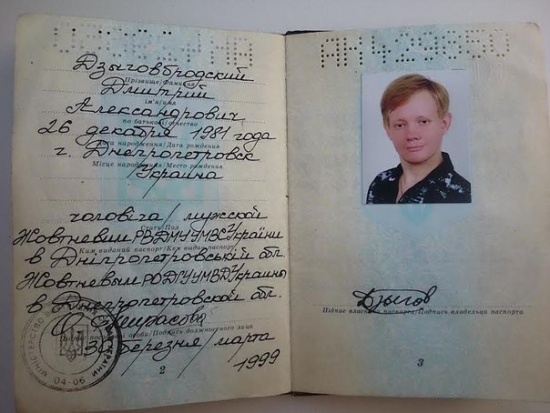 АН 429650
Дзыговбродский
Прізвище/Фамилия
Дмитрий
ім'я/имя
Александрович
по батькові/отчество
26 декабря 1981 года
Дата народження/Дата рождения
г. Днепропетровск
Місце народження/Место рождения
Украина
чоловіча/мужской
Стать/Пол
Жовтневим РВДМУУМВС України
Ким виданий паспорт/Кем выдан паспорт
в Дніпропетровській обл.
Жовтневым РОДГУУМВД Украины
в Днепропетровской обл.
особи/Подпись должностного лица
30 березня/марта
1999
МІНІСТЕРСТВО
УКРАЇНИ
04-06
2
Дзыгов
Підпис власника паспорта/Подпись владельца паспорта
3